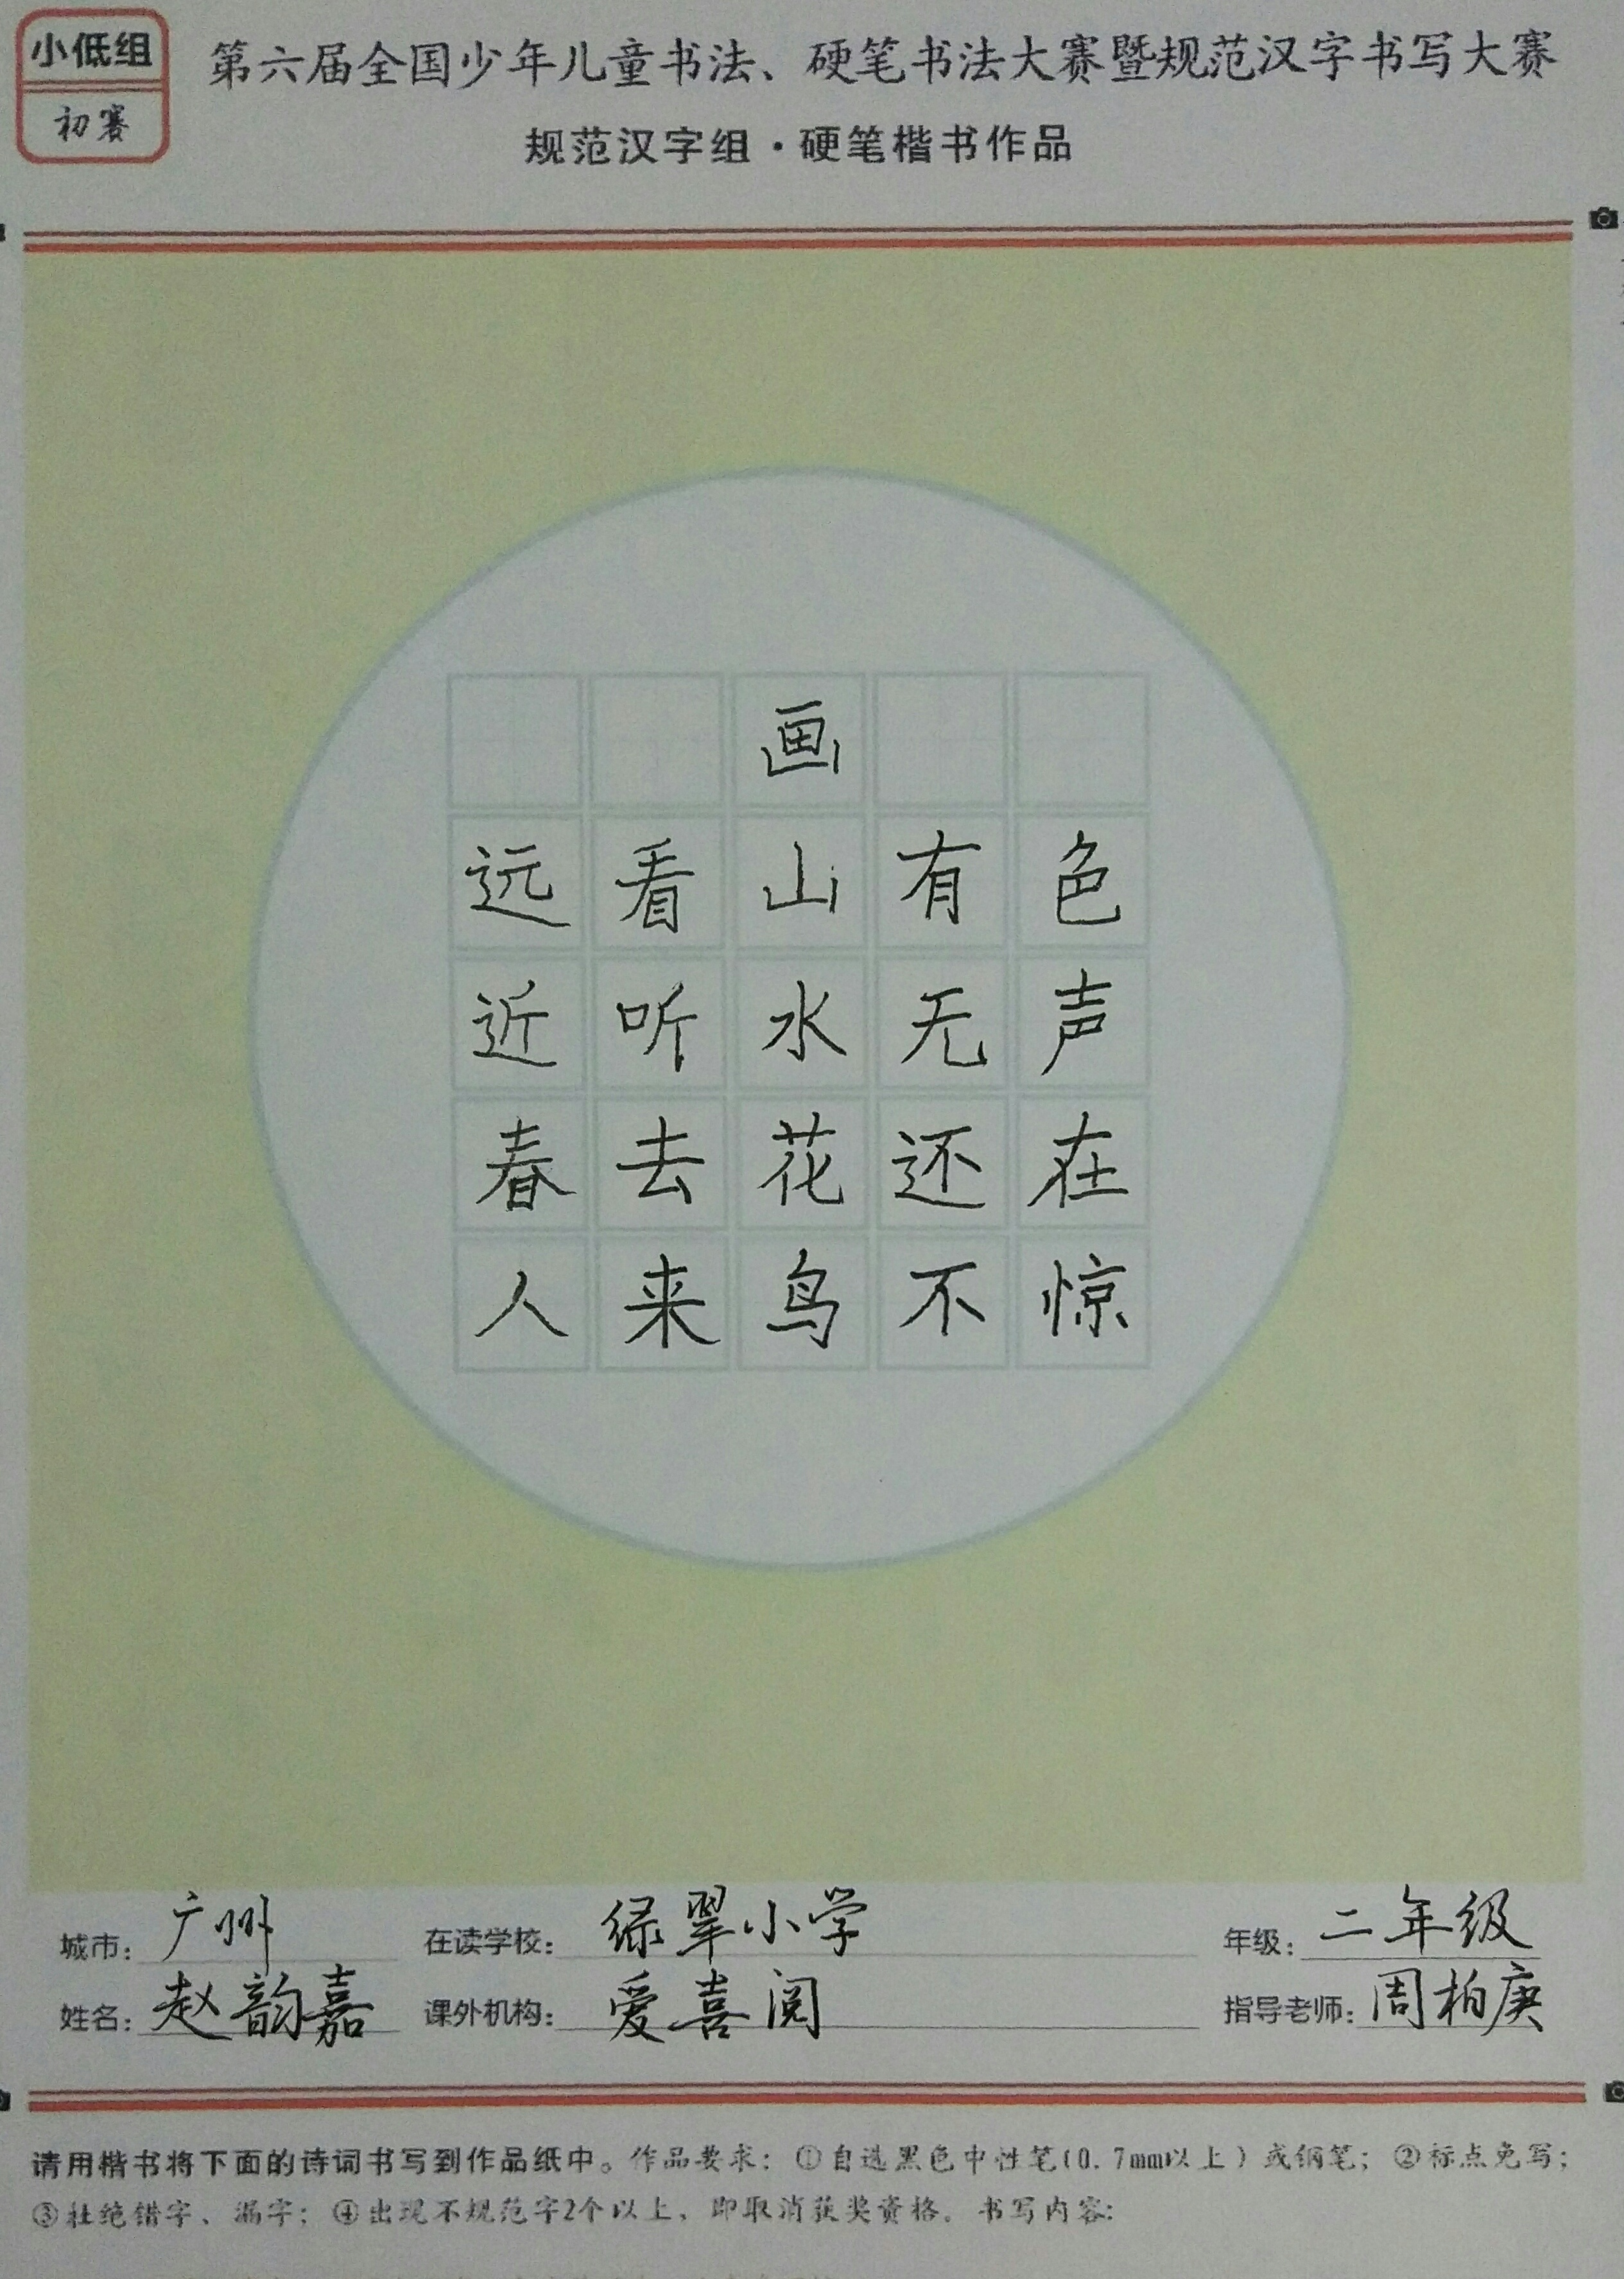 小低组
初赛
第六届全国少年儿童书法、硬笔书法大赛暨规范汉字书写大赛
规范汉字组·硬笔楷书作品
画
远看山有色
近听水无声
春去花还在
人来鸟不惊
城市：广州 在读学校：绿翠小学 年级：二年级
姓名：赵韵嘉 课外机构：爱喜阅 指导老师：周柏庚
请用楷书将下面的诗词书写到作品纸中。作品要求：①自选黑色中性笔(0.7mm以上)或钢笔；②标点免写；
③杜绝错字、漏字；④出现不规范字2个以上，即取消获奖资格。书写内容：